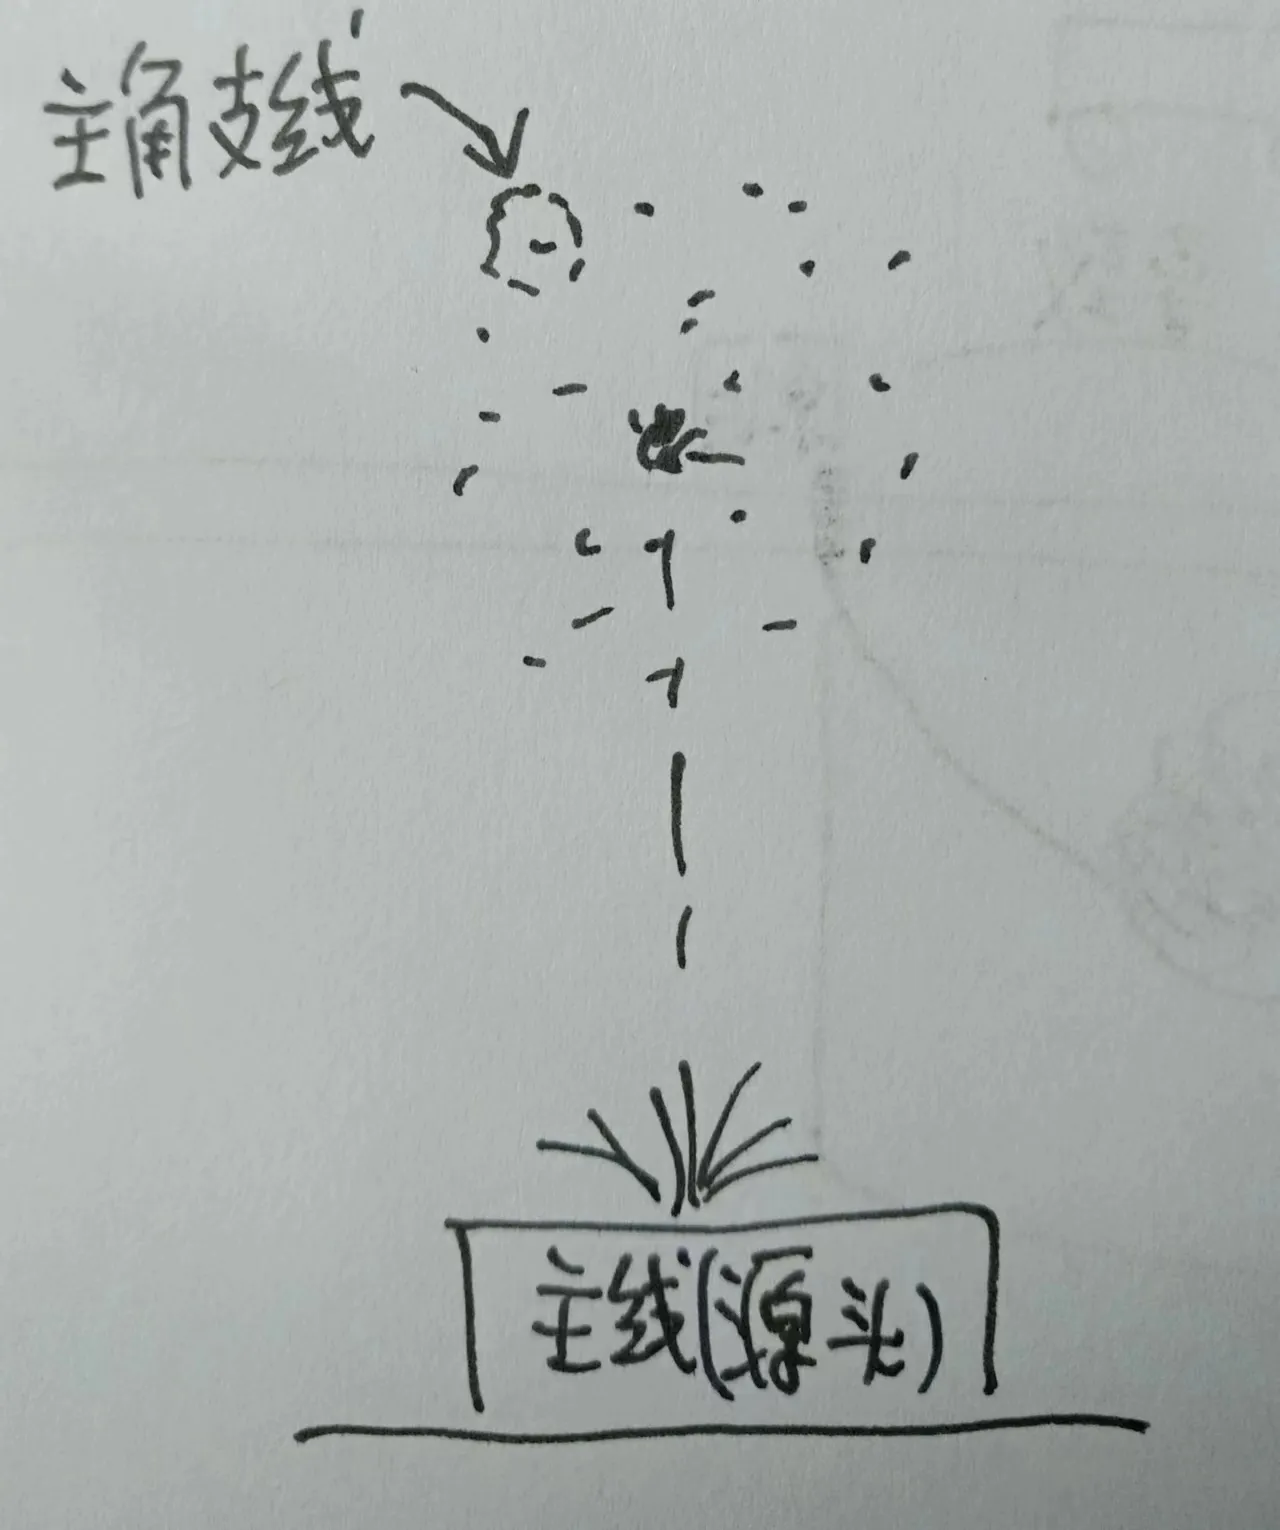 主角支线
主线(源头)